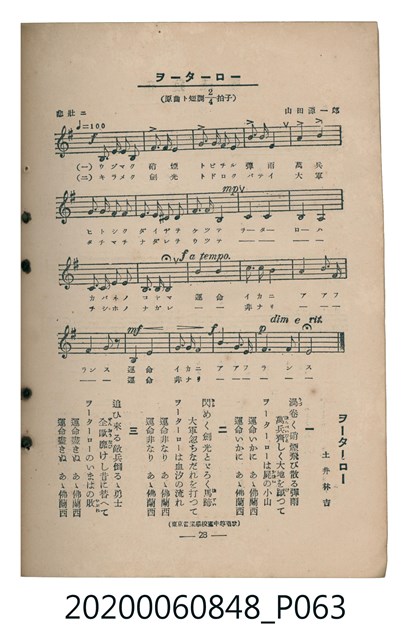 ヲーターロー
(原曲ト短調2/4拍子)
悲壯ニ
山田源一郎
♩=100
f
(一)ウヅマク 硝煙 トビチル 彈雨 萬兵
(二)キラメク 劍光 トドロク バテイ 大軍
mp
ヒトシク ダイチヲ ケツテ ヲーターローハ
タチマチ ナダレヲ ウツテ
f a tempo.
カバネノ コヤマ 運命 イカニ アアフ
チシホノ ナガレ 非ナリ
mf
f
p
dim e rit.
ランス 運命 イカニ アアフランス
運命 非ナリ
ヲーターロー
土井林吉
一
渦卷く硝煙飛び散る彈雨
萬兵齊しく大地を蹴つて
ヲーターローは屍の小山
運命いかに あゝ佛蘭西
運命いかに あゝ佛蘭西
二
閃めく劍光とゞろく馬蹄
大軍忽ちなだれを打つて
ヲーターローは血汐の流れ
運命非なり あゝ佛蘭西
運命非なり あゝ佛蘭西
三
追ひ來る敵兵倒るゝ勇士
ヲーターローのいまはの歌
運命盡きぬ あゝ佛蘭西
運命盡きぬ あゝ佛蘭西
28
20200060848_P063